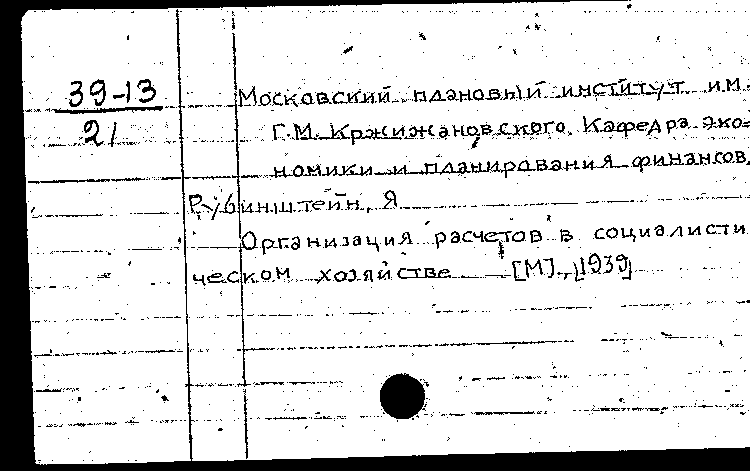 39-13
21
Московский плановый институт им.
Г.М. Кржижановского. Кафедра эко-
номики и планирования финансов.
Рубинштейн, Я
Организация расчетов в социалисти
ческом хозяйстве [М]., [1939]